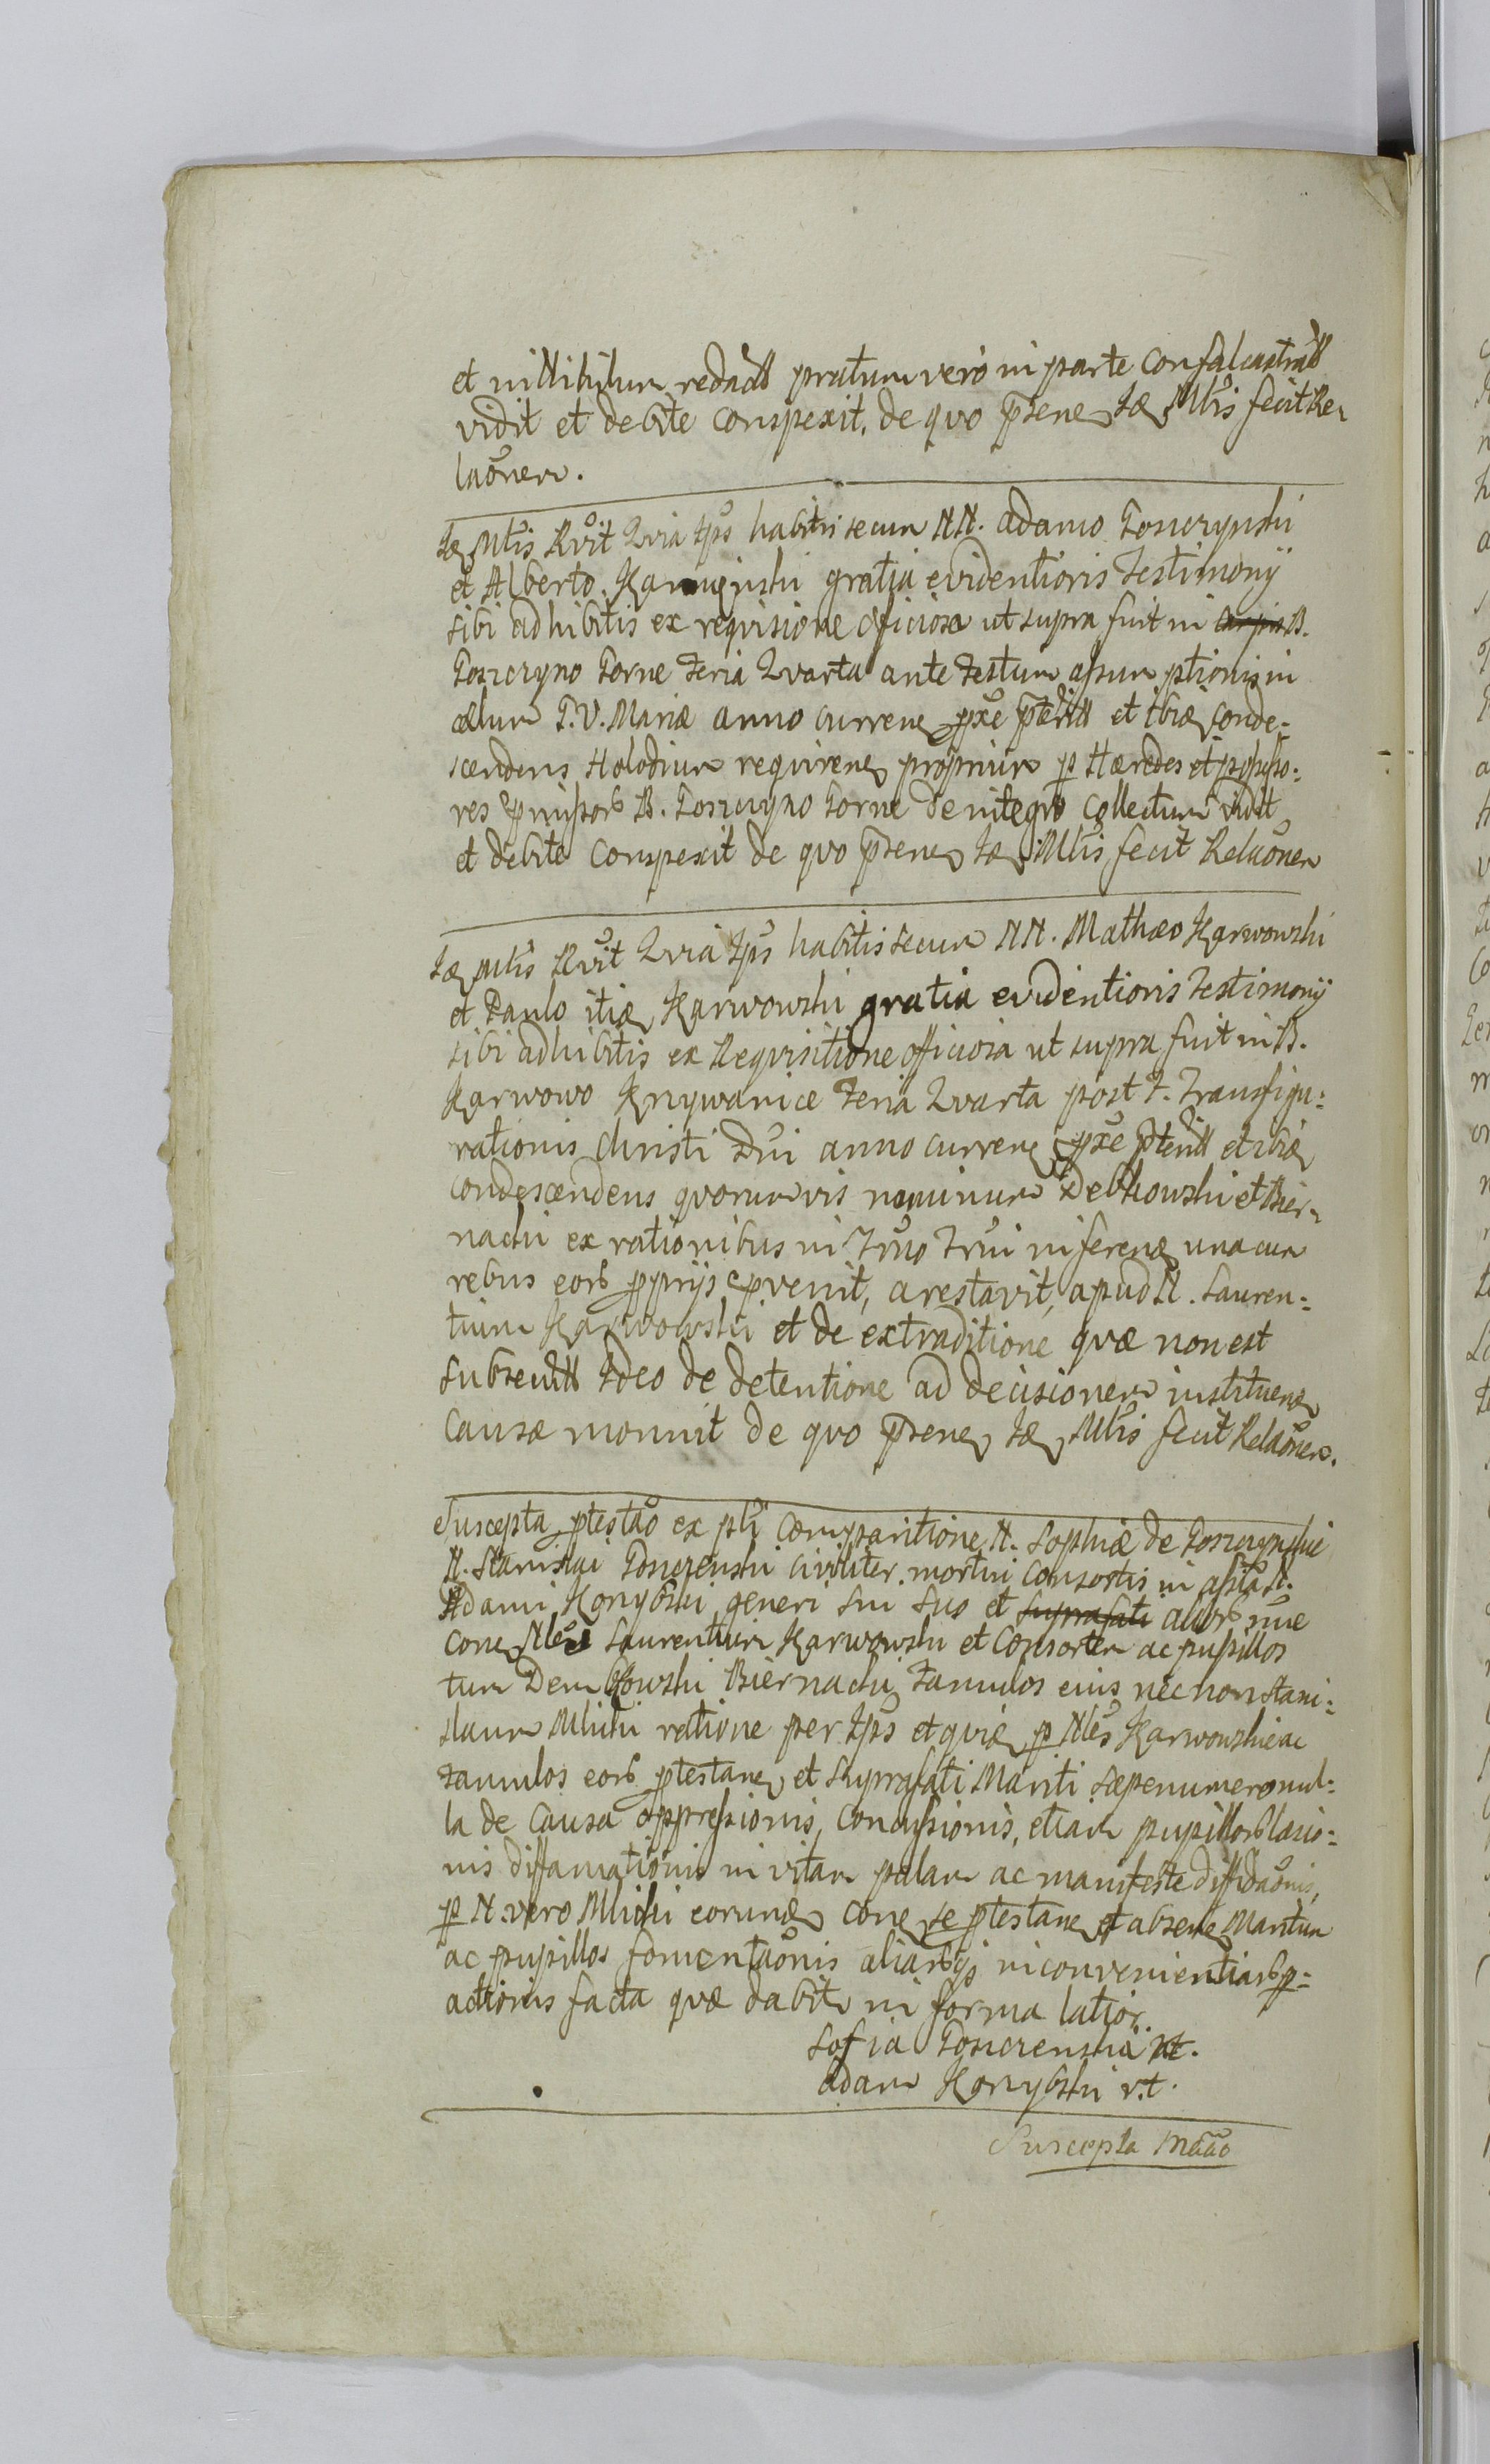 et in nihilum redact pratum vero in parte confalcastrat
vidit et debite conspexit. de quo p̄rene Idē Mlis fecit Re-
laōnem.
Idē Mlis Rvit Qvia Ips habitis secum NN. Adamo Goszczynski
et Alberto Kamienski gratia evidentioris Testimonij
sibi adhibitis ex reqvisione officiosa ut supra fuit in B.
Goszczyno Gorne Feria Qvarta ante Festum assumptionis in
cælum B.V. Mariæ anno currene pxe pterit et ibiē conde-
scendens Holodium reqvirene proprium p Hæredes et posseso-
res pmissorb B. Goszczyno Gorne de integro collectum vidit
et debite conspexit de qvo p̄rene Idē Mlis fecit Relaōnem
Idē Mlis Rvit Qvia Ips habitis secum NN. Mathæo Karwowski
et Paulo itiē Karwowski gratia evidentioris Testimonij
sibi adhibitis ex Reqvisitione officiosa ut supra fuit in B.
Karwowo Krzywanice Feria Qvarta post F. Transfigu-
rationis Christi Dni anno currene pxe pterit et ibiē
condescendens qvorumvis nominum Debkowski et Bier-
nacki ex rationibus in Tno Trui inferenē una cum
rebus eorb pprijs pvenit, arestavit, apud N. Lauren-
tium Karwowski et de extraditione qvæ non est
subsecuta Ideo de detentione ad decisionem instituenē
causæ monuit de qvo p̄rene Idē Mlis fecit Relaōnem.
Suscepta ptestaō ex pli comparitione N. Sophiæ de Goszczynskie
N. Stanislai Goszczenski civiliter mortui consortis in assta N.
Adami Konybski generi sui suo et suprafati aliorb nne
cone Nles Laurentium Karwowski et Consortem ac pupillos
tum Dembkowski Biernacki Famulos eius nec non Stani-
slaum Mlicki ratione per Ips et qviē p Nles Karwowskie ac
Famulos eorb ptestane et suprafati Mariti sæpenumero nul-
la de causa oppressionis, concussionis, etiam pupillorb læsio-
nis diffamationis in vitam palam ac manifeste diffidaōnis,
p N. vero Mlicki eorunē cone se ptestane et absene Maritum
ac pupillos fomentaōnis aliarbqs inconvenientiarb p-
actionis facta qvæ dabitr in forma latior.
Sofia Goszczenska
adam Konybski r.t.
Suscepta Maāo